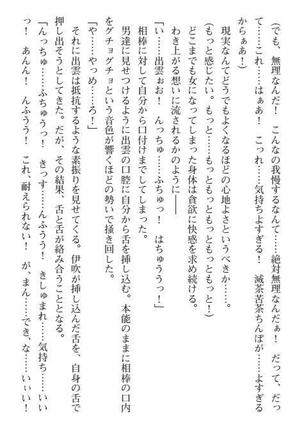 (でも、無理なんだぁ！　こんなの我慢するなんて……絶対無理なんだぁ！　だって、だっ
て……これ……はぁぁ！　これっ……気持ちよすぎる！　滅茶苦茶ちんぽが……よすぎる
からぁぁ！)
　現実なんてどうでもよくなるほどの心地よさというべきか……。
(もっと感じたい。もっと……もっともっともっともっと！)
　どこまでも女になってしまった身体は貪欲に快感を求め続ける。
　わき上がる想いに流されるかのように――
「い……出雲ぉ！　んっちゅ……ふちゅっ！　はちゅううっ！」
　相棒に対して自分から口付けまでしてしまった。
　男達に見せつけるように出雲の口腔に自分から舌を挿し込む。本能のままに相棒の口内
をグチョグチョという音色が響くほどの勢いで掻き回した。
「や……やっめろ……！」
　それに出雲は抵抗するような素振りを見せてくる。伊吹が挿し込んだ舌を、自身の舌で
押し出そうとしてきた。だが、その結果、舌と舌が絡み合うこととなる。
「んっちゅ……ふちゅうっ！　きっす……んふうう！　きしゅまれ……気持ち……いい
っ！　あんん！　んふうう！　これ、耐えられない！　が、まん……でき、な……いぃい！